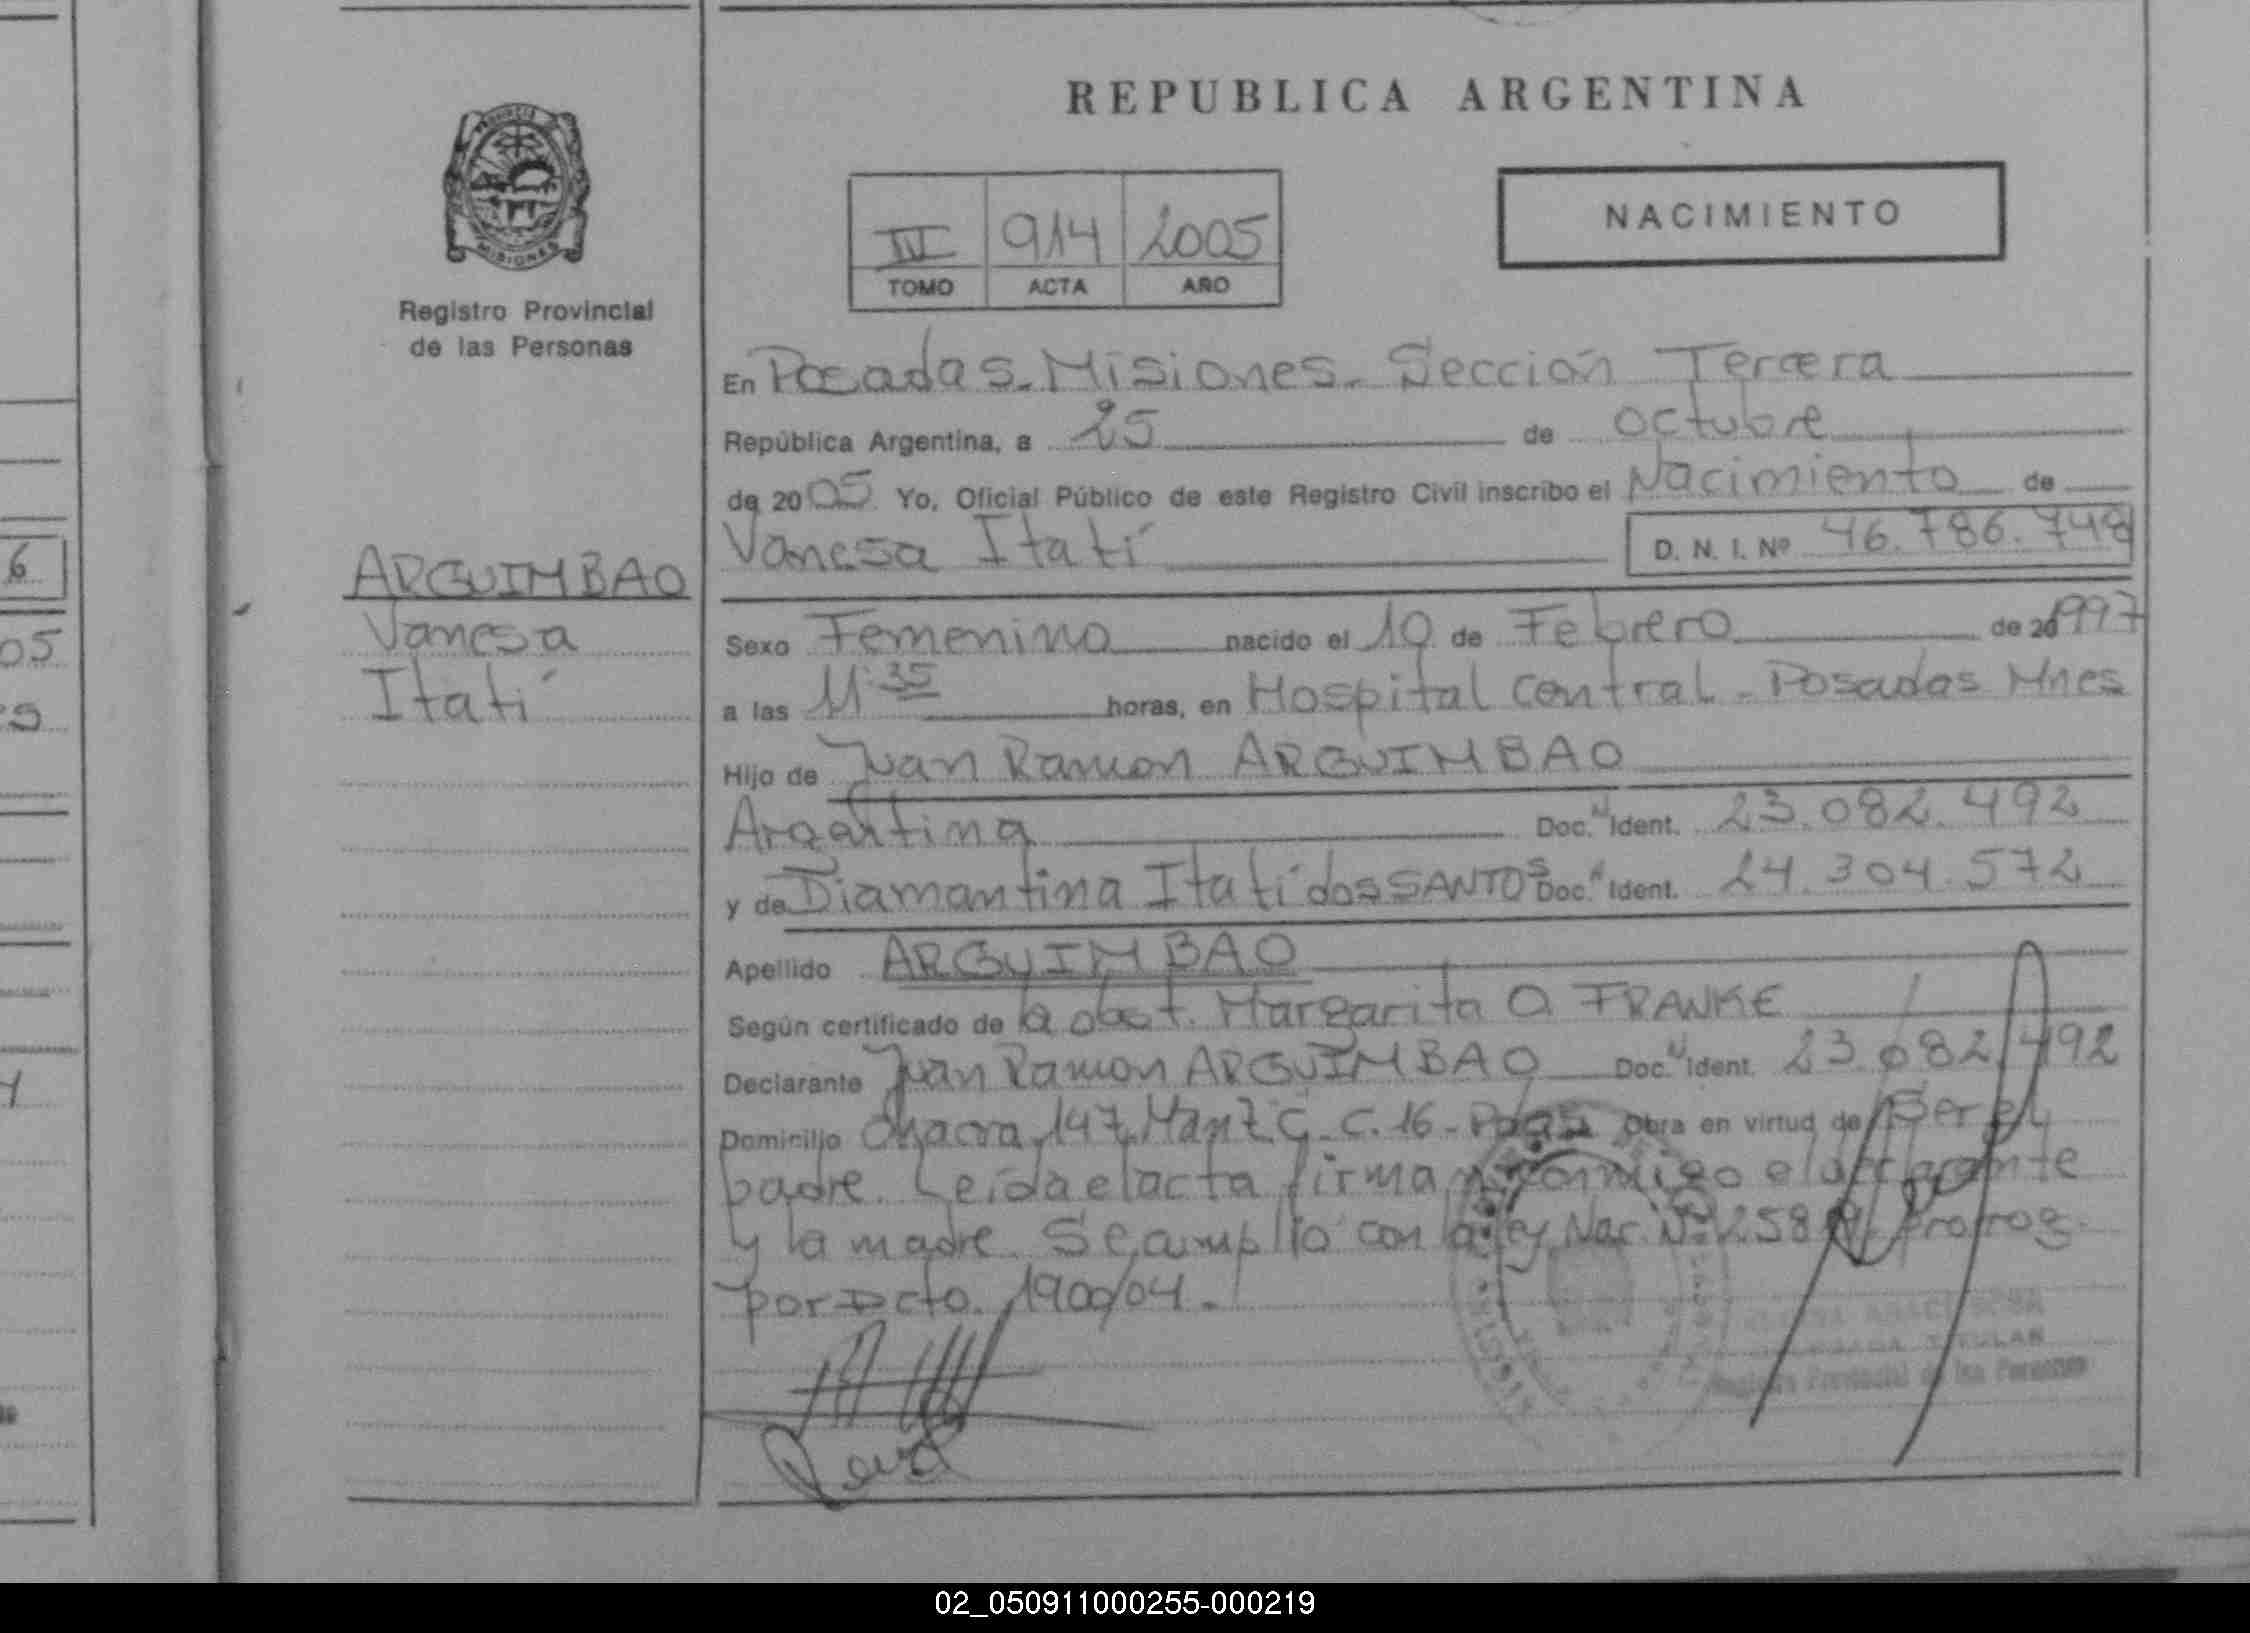 REPUBLICA ARGENTINA
PROVINCIA DE
MISIONES
Registro Provincial
de las Personas
IV 914 2005
TOMO ACTA AÑO
NACIMIENTO
En Posadas - Misiones - Sección Tercera
República Argentina, a 25 de octubre
de 2005 Yo, Oficial Público de este Registro Civil inscribo el Nacimiento de
Vanesa Itatí D. N. I. Nº 46.786.748
ARGUIMBAO
Vanesa
Itatí
Sexo Femenino nacido el 10 de Febrero de 1997
a las 11:35 horas, en Hospital Central - Posadas Mnes
Hijo de Juan Ramon ARGUIMBAO
Argentina Doc. N Ident. 23.082.492
y de Diamantina Itatí dos SANTOS Doc. N Ident. 24.304.572
Apellido ARGUIMBAO
Según certificado de la obst. Margarita O. FRANKE
Declarante Juan Ramon ARGUIMBAO Doc. N Ident. 23.082.492
Domicilio Chacra 147. Manz. C. C. 16 - Pdas Obra en virtud de Ser el
padre. Leída el acta firman conmigo el declarante
y la madre. Se cumplió con la ley Nac. Nº 25819 Prorrog.
por Dcto. 1900/04.-
TITULAR
Registro Provincial de las Personas
6
05
es
02_050911000255-000219